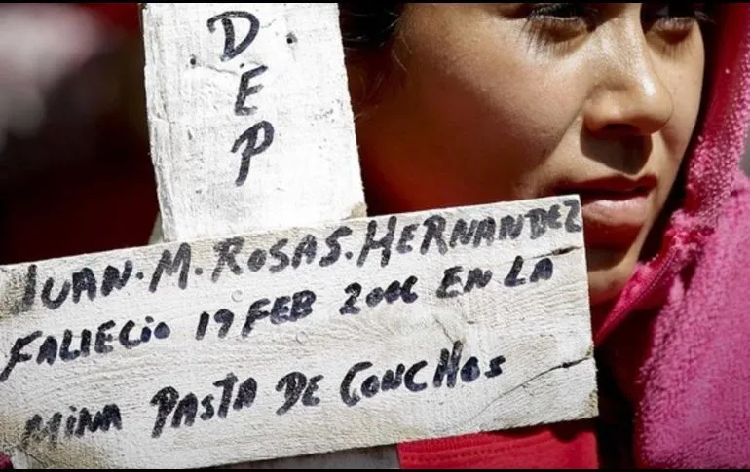 D
E
P
JUAN. M. ROSAS. HERNANDEZ
FALLECIO 19 FEB 2006 EN LA
MINA PASTA DE CONCHOS